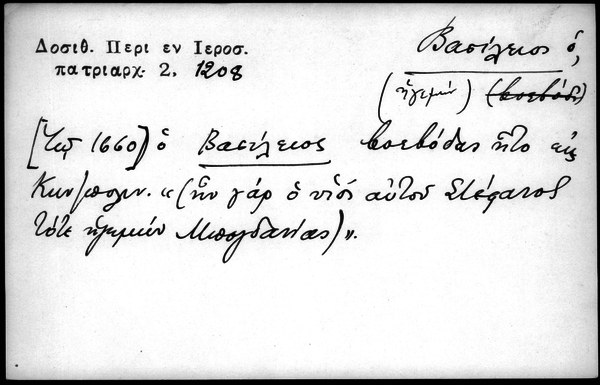 Δοσιθ. Περι εν Ιεροσ.
πατριαρχ. 2. 1208
Βασίλειος ὁ,
(ἡγεμών) (βοεβόδα)
[Τῷ 1660] ὁ Βασίλειος βοεβόδας ἦτο εἰς
Κων/πολιν. «(ἦν γάρ ὁ υἱός αὐτοῦ Στέφανος
τότε ἡγεμών Μπογδανίας)».